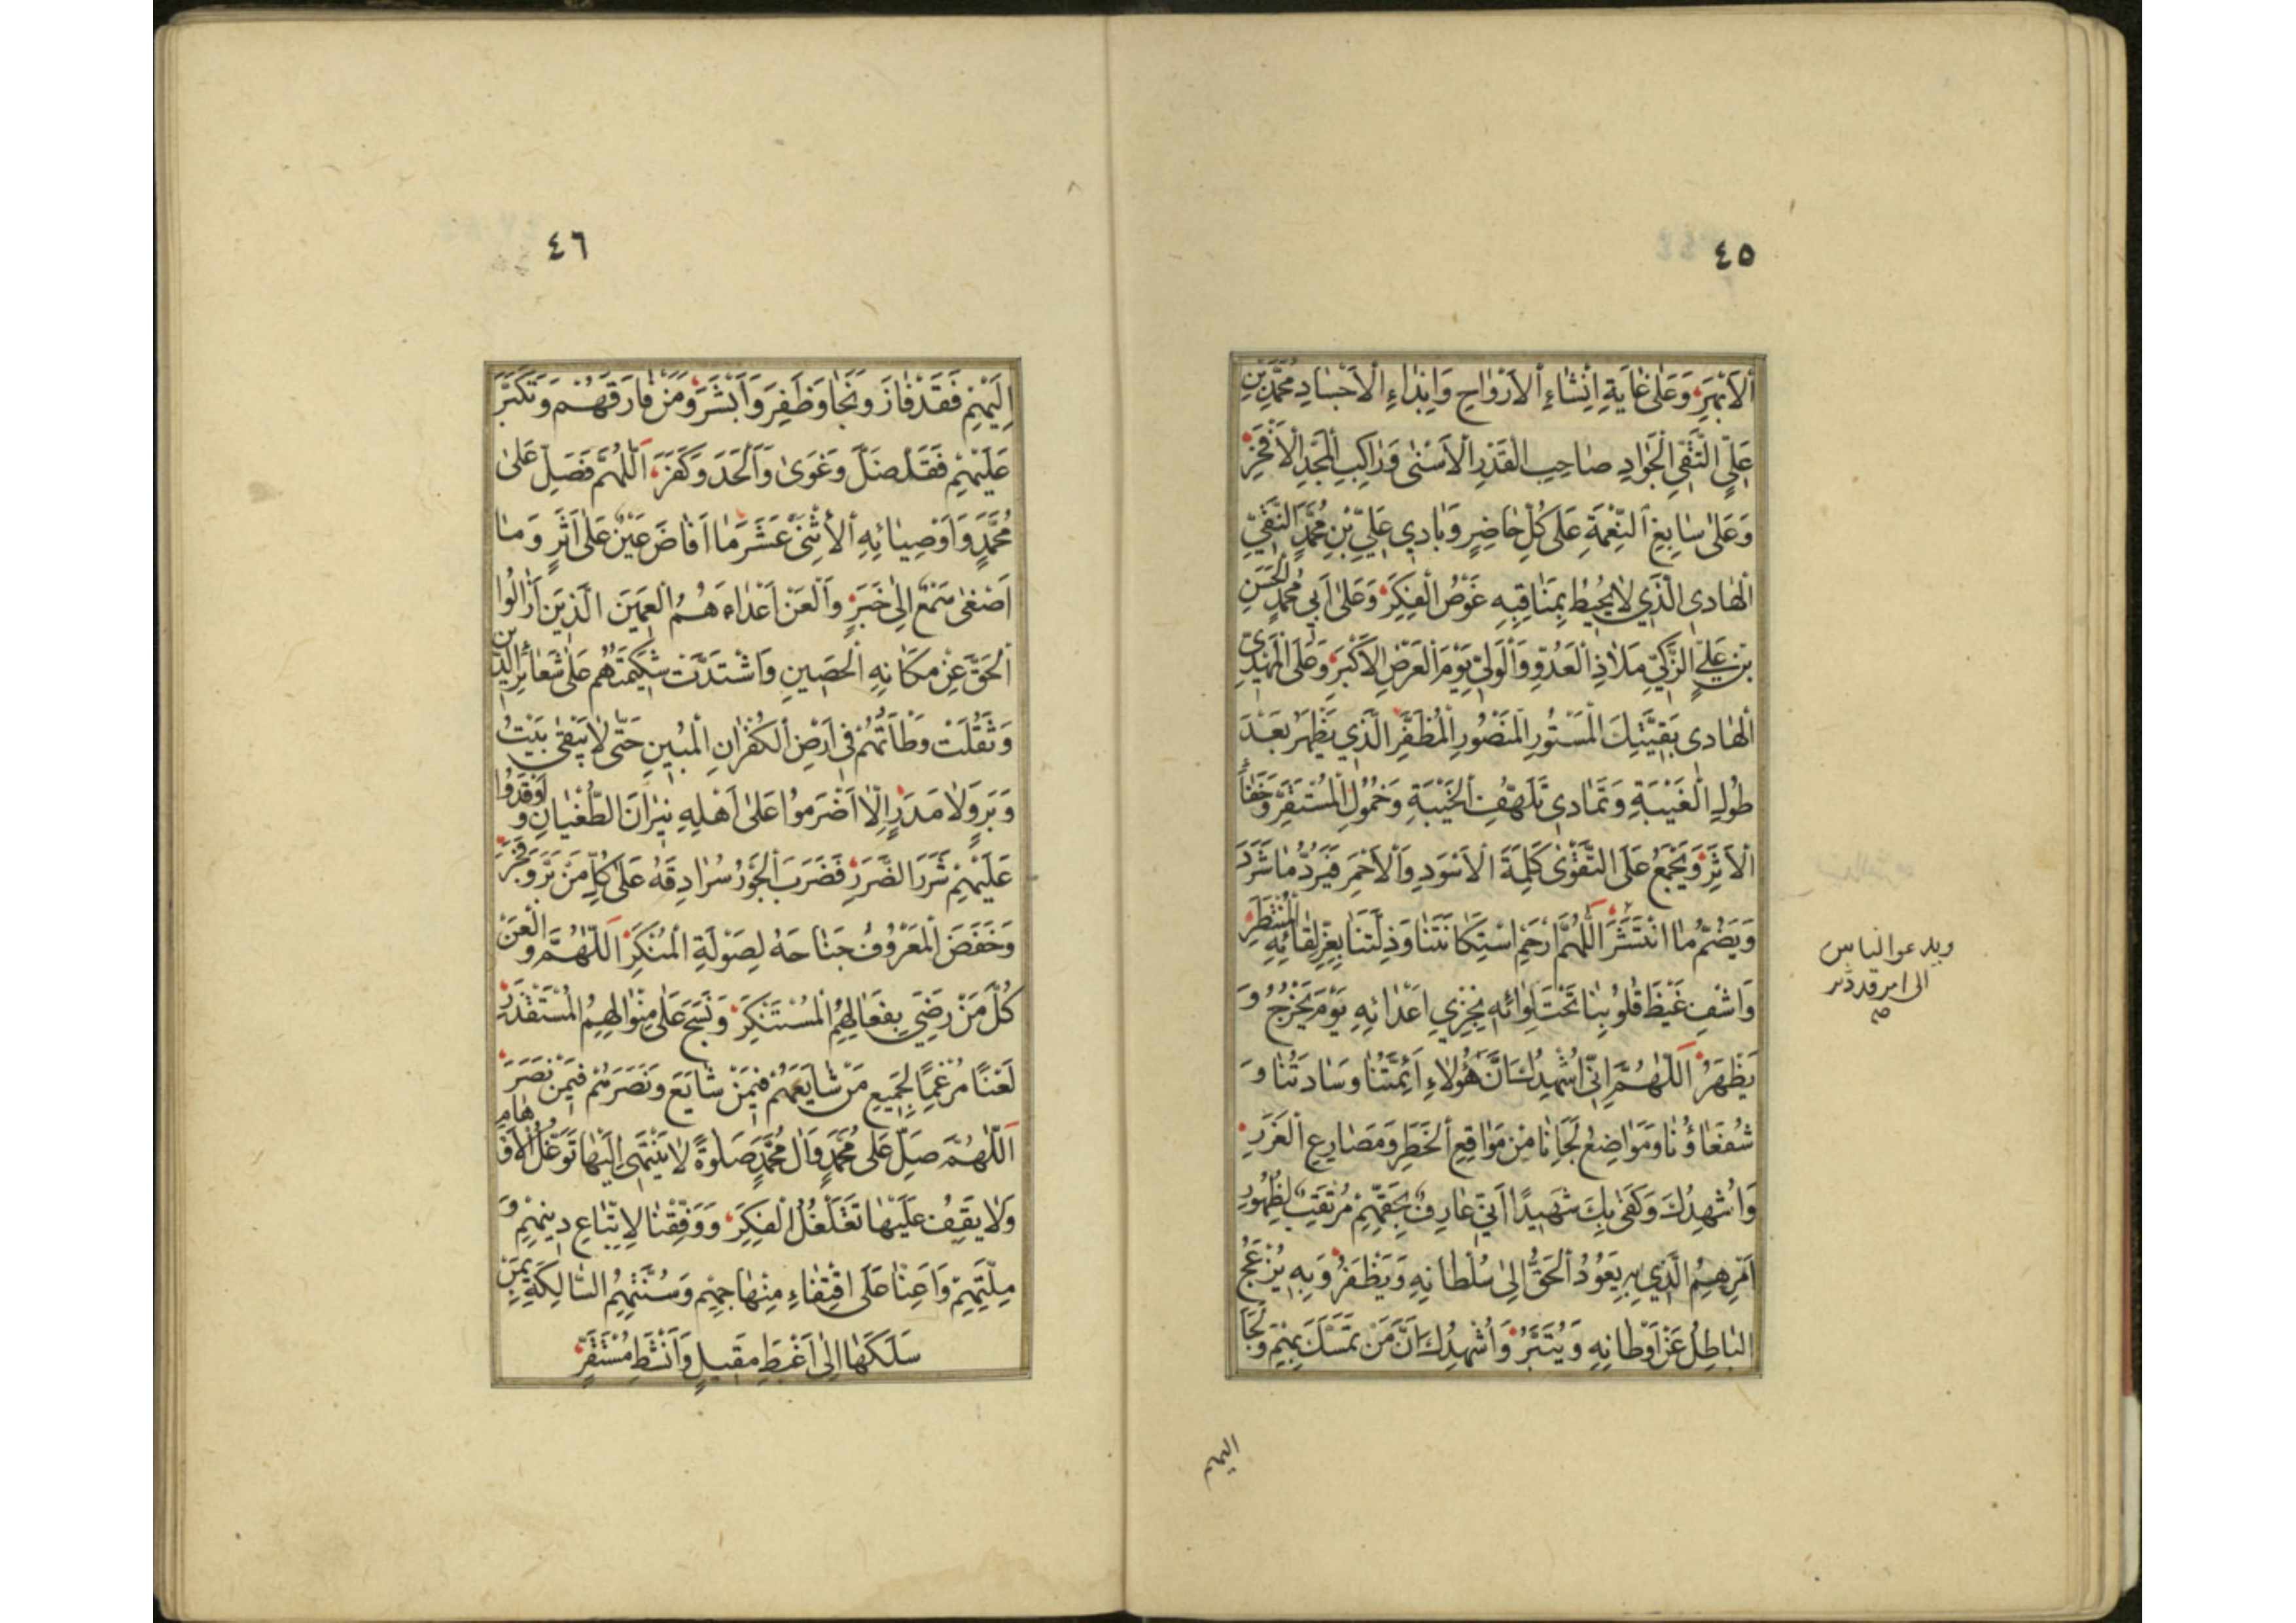 ٤٥
اَلْاَبْهَرِ وَعَلٰى غٰايَةِ اِنْشٰاءِ الْاَرْوٰاحِ وَاِبْدٰاءِ الْاَجْسٰادِ مُحَمَّدِ بْنِ
عَلِيٍّ التَّقِيِّ الْجَوٰادِ صٰاحِبِ الْقَدْرِ الْاَسْنٰى وَرٰاكِبِ الْمَجْدِ الْاَفْخَرِ
وَعَلٰى سٰابِغِ النِّعْمَةِ عَلٰى كُلِّ حٰاضِرٍ وَبٰادِي عَلِيِّ بْنِ مُحَمَّدٍ النَّقِيِّ
الْهٰادِي الَّذِي لٰا يُحِيطُ بِمَنٰاقِبِهِ غَوْصُ الْفِكَرِ وَعَلٰى اَبِي مُحَمَّدٍ الْحَسَنِ
بْنِ عَلِيٍّ الزَّكِيِّ مَلٰاذِ الْعَدُوِّ وَالْوَلِيِّ يَوْمَ الْعَرْضِ الْاَكْبَرِ وَعَلَى الْمَهْدِيِّ
الْهٰادِي بَقِيَّتِكَ الْمَسْتُورِ الْمَنْصُورِ الْمُظَفَّرِ الَّذِي يَظْهَرُ بَعْدَ
طُولِ الْغَيْبَةِ وَتَمٰادِي تَلَهُّفِ الْخَيْبَةِ وَخُمُولِ الْمُسْتَقَرِّ وَخَفٰاءِ
الْاَثَرِ وَيَجْمَعُ عَلَى التَّقْوٰى كَلِمَةَ الْاَسْوَدِ وَالْاَحْمَرِ فَيَرُدُّ مٰا شَرَدَ
وَيَضُمُّ مٰا انْتَشَرَ اَللّٰهُمَّ ارْحَمْ اسْتِكٰانَتَنٰا وَذِلَّتَنٰا بِعِزِّ لِقٰائِهِ الْمُنْتَظَرِ
وَاشْفِ غَيْظَ قُلُوبِنٰا تَحْتَ لِوٰائِهِ بِخِزْيِ اَعْدٰائِهِ يَوْمَ يَخْرُجُ وَ
يَظْهَرُ اَللّٰهُمَّ اِنِّي اُشْهِدُكَ اَنَّ هٰؤُلٰاءِ اَئِمَّتُنٰا وَسٰادَتُنٰا وَ
شُفَعٰاؤُنٰا وَمَوٰاضِعُ لَجَائِنٰا مِنْ مَوٰاقِعِ الْخَطَرِ وَمَصٰارِعِ الْغَرَرِ
وَاُشْهِدُكَ وَكَفٰى بِكَ شَهِيدًا اَنِّي عٰارِفٌ بِحَقِّهِمْ مُرْتَقِبٌ لِظُهُورِ
اَمْرِهِمُ الَّذِي بِهِ يَعُودُ الْحَقُّ اِلٰى سُلْطٰانِهِ وَيَظْفَرُ وَبِهِ يُزْعَجُ
الْبٰاطِلُ عَنْ اَوْطٰانِهِ وَيُتَبَّرُ وَاُشْهِدُكَ اَنَّ مَنْ تَمَسَّكَ بِهِمْ وَلَجَا
ويدعو الناس
الى امر قد دثر
اليهم
٤٦
اِلَيْهِمْ فَقَدْ فٰازَ وَنَجٰا وَظَفِرَ وَاَبْشَرَ وَمَنْ فٰارَقَهُمْ وَتَكَبَّرَ
عَلَيْهِمْ فَقَدْ ضَلَّ وَغَوٰى وَاَلْحَدَ وَكَفَرَ اَللّٰهُمَّ فَصَلِّ عَلٰى
مُحَمَّدٍ وَاَوْصِيٰائِهِ الْاِثْنَيْ عَشَرَ مٰا اَفٰاضَ عَيْنٌ عَلٰى اَثَرٍ وَمٰا
اَصْغٰى سَمْعٌ اِلٰى خَبَرٍ وَالْعَنْ اَعْدٰاءَهُمُ الْعَمِينَ الَّذِينَ اَزٰالُوا
الْحَقَّ عَنْ مَكٰانِهِ الْحَصِينِ وَاشْتَدَّتْ شَكِيمَتُهُمْ عَلٰى شَعٰائِرِ الدِّينِ
وَثَقُلَتْ وَطْأَتُهُمْ فِي اَرْضِ الْكُفْرٰانِ الْمُبِينِ حَتّٰى لٰا يَبْقٰى بَيْتُ
وَبَرٍ وَلٰا مَدَرٍ اِلّٰا اَضْرَمُوا عَلٰى اَهْلِهِ نِيرٰانَ الطُّغْيٰانِ وَاَوْقَدُوا
عَلَيْهِمْ شَرَرَ الضَّرَرِ فَضَرَبَ الْجَوْرُ سُرٰادِقَهُ عَلٰى كُلِّ مَنْ بَرَّ وَفَجَرَ
وَخَفَضَ الْمَعْرُوفُ جَنٰاحَهُ لِصَوْلَةِ الْمُنْكَرِ اَللّٰهُمَّ وَالْعَنْ
كُلَّ مَنْ رَضِيَ بِفَعٰالِهِمُ الْمُسْتَنْكَرِ وَنَسَجَ عَلٰى مِنْوٰالِهِمُ الْمُسْتَقْذَرِ
لَعْنًا مُرْغِمًا لِجَمِيعِ مَنْ شٰايَعَهُمْ فِيمَنْ شٰايَعَ وَنَصَرَهُمْ فِيمَنْ نَصَرَ
اَللّٰهُمَّ صَلِّ عَلٰى مُحَمَّدٍ وَاٰلِ مُحَمَّدٍ صَلٰوةً لٰا يَنْتَهِي اِلَيْهٰا تَوَغُّلُ الْاَوْهٰامِ
وَلٰا يَقِفُ عَلَيْهٰا تَغَلْغُلُ الْفِكَرِ وَوَفِّقْنٰا لِاِتِّبٰاعِ دِينِهِمْ وَ
مِلَّتِهِمْ وَاَعِنّٰا عَلَى اقْتِفٰاءِ مِنْهٰاجِهِمْ وَسُنَّتِهِمُ السّٰالِكَةِ بِمَنْ
سَلَكَهٰا اِلٰى اَغْبَطِ مَقِيلٍ وَاَنْشَطِ مُسْتَقَرٍّ